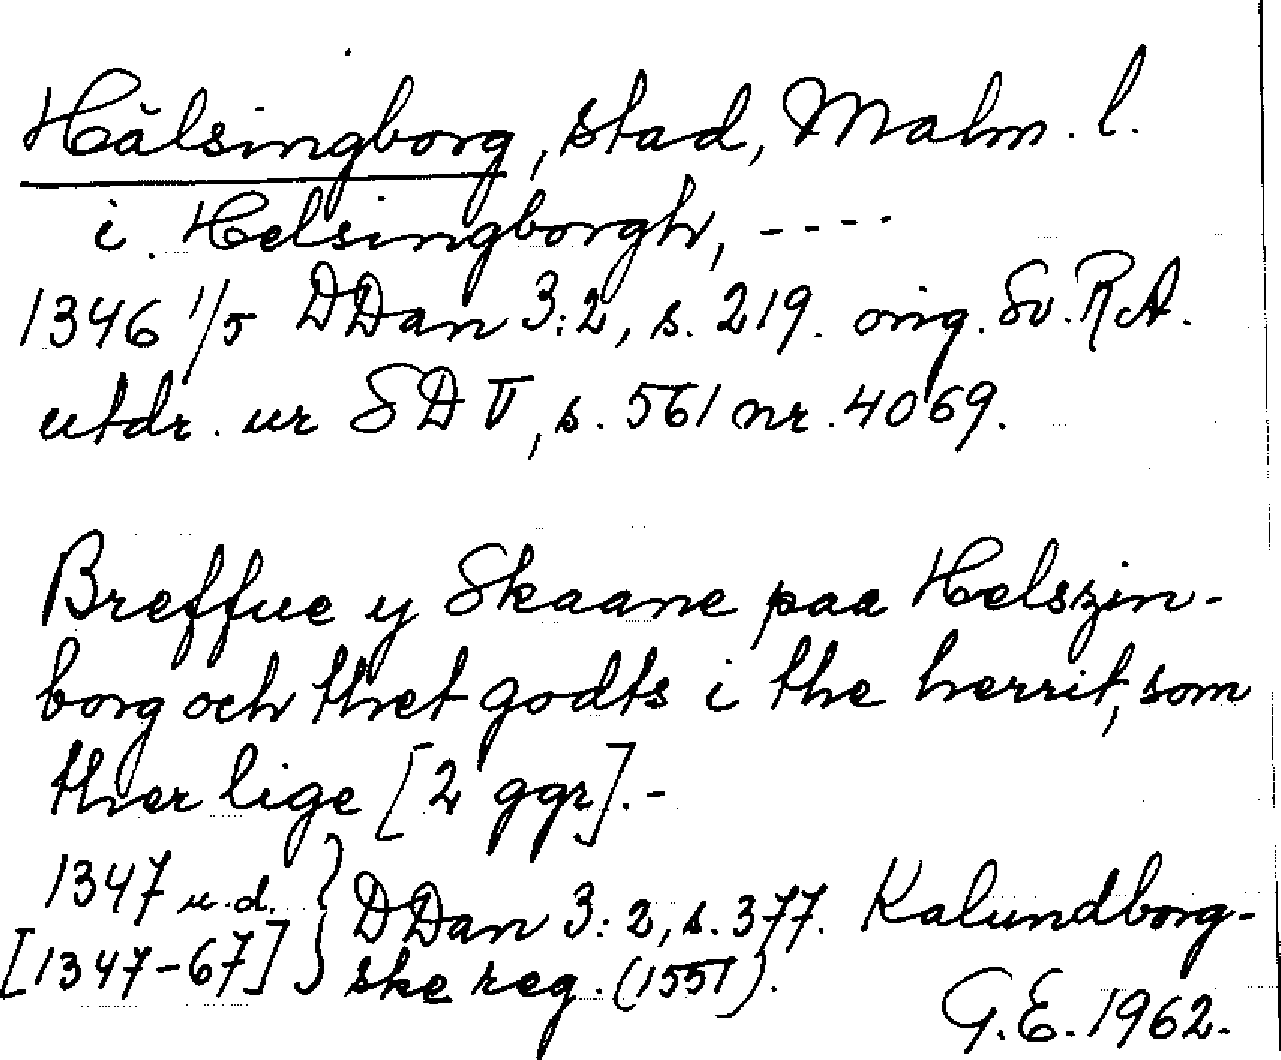 Hälsingborg, stad, Malm. l.
i. Helsingborgh, ----
1346 1/5 DDan 3:2, s. 219. orig. Sv. RA.
utdr. ur SD V, s. 561 nr. 4069.
Breffue y Skaane paa Helszin-
borg och thet godts i the herrit, som
ther lige [2 ggr]. -
1347 u.d. } DDan 3:2, s. 377. Kalundborg-
[1347-67] } ske reg. (1551).
G.E. 1962.